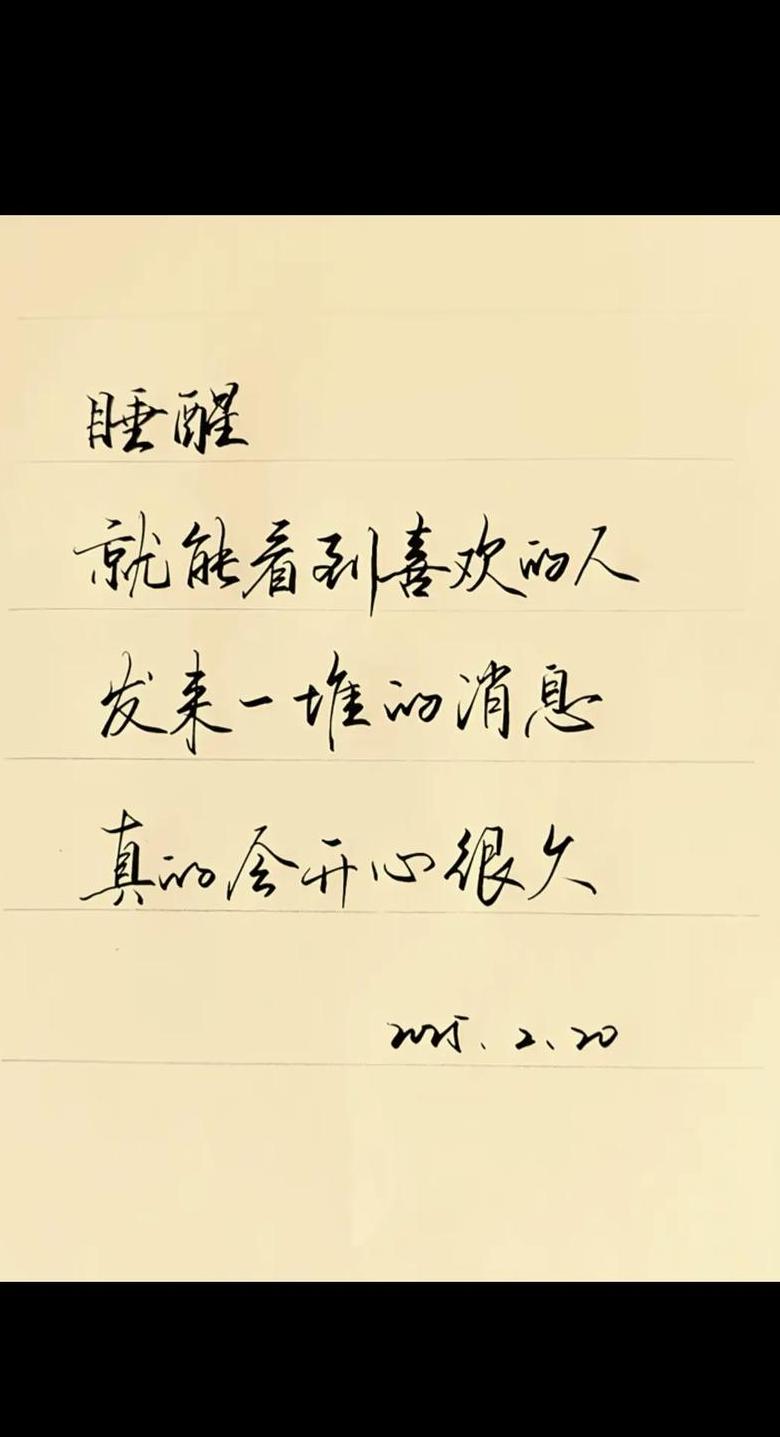 睡醒
就能看到喜欢的人
发来一堆的消息
真的会开心很久
2025.2.20